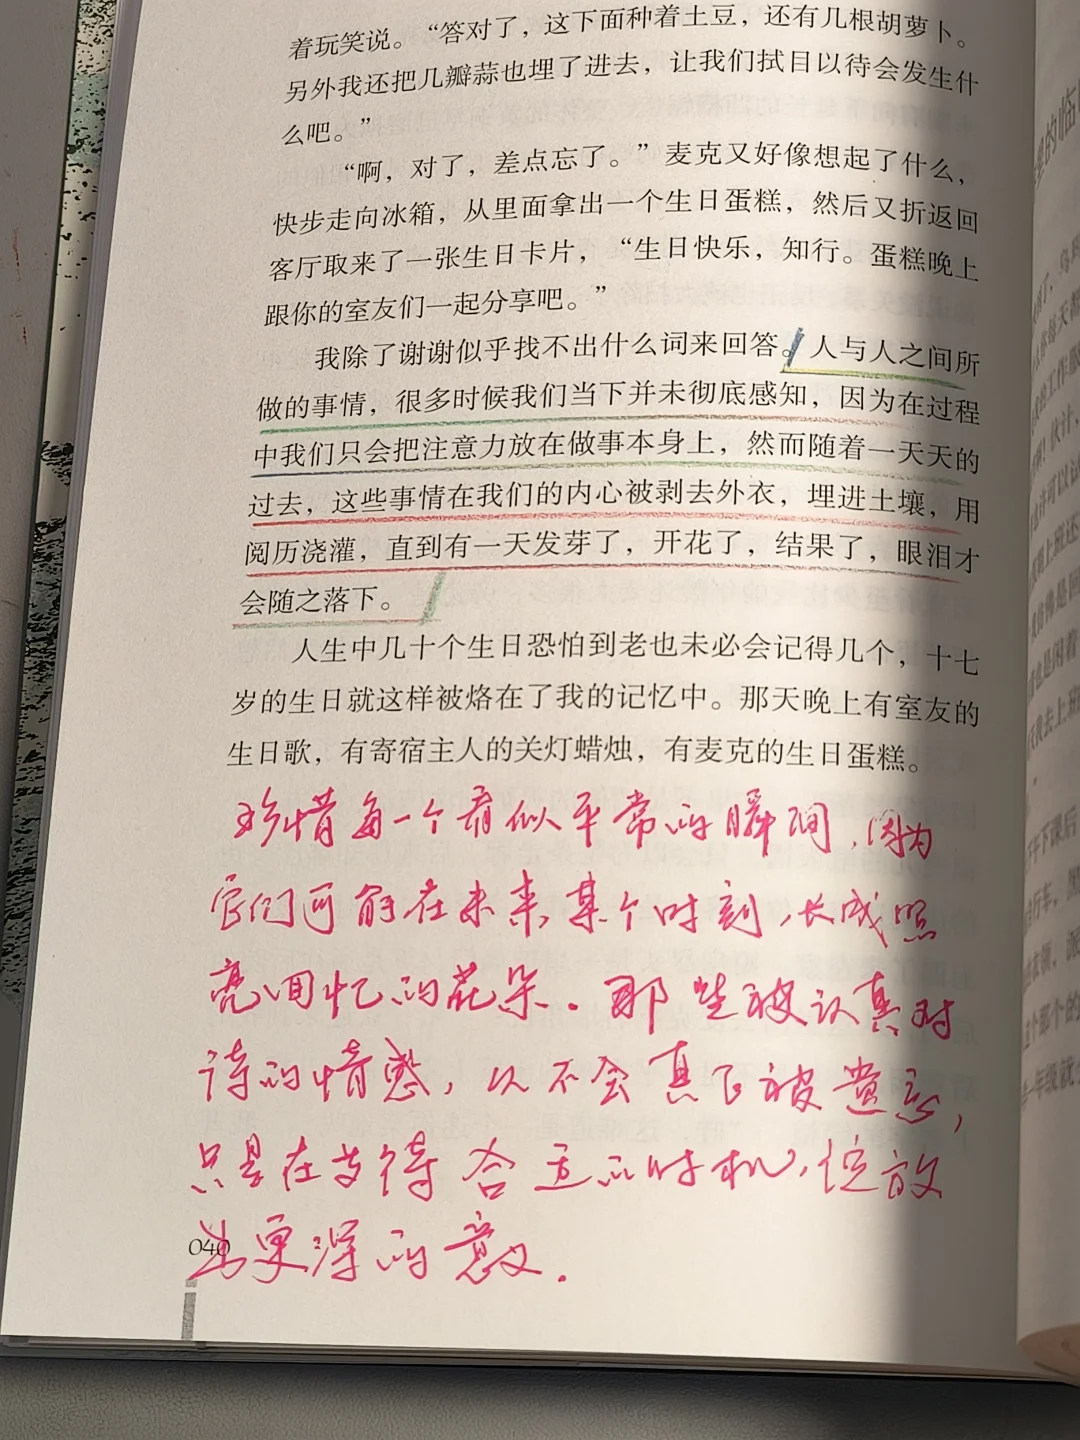 着玩笑说。“答对了，这下面种着土豆，还有几根胡萝卜。
另外我还把几瓣蒜也埋了进去，让我们拭目以待会发生什
么吧。”
“啊，对了，差点忘了。”麦克又好像想起了什么，
快步走向冰箱，从里面拿出一个生日蛋糕，然后又折返回
客厅取来了一张生日卡片，“生日快乐，知行。蛋糕晚上
跟你的室友们一起分享吧。”
我除了谢谢似乎找不出什么词来回答。人与人之间所
做的事情，很多时候我们当下并未彻底感知，因为在过程
中我们只会把注意力放在做事本身上，然而随着一天天的
过去，这些事情在我们的内心被剥去外衣，埋进土壤，用
阅历浇灌，直到有一天发芽了，开花了，结果了，眼泪才
会随之落下。
人生中几十个生日恐怕到老也未必会记得几个，十七
岁的生日就这样被烙在了我的记忆中。那天晚上有室友的
生日歌，有寄宿主人的关灯蜡烛，有麦克的生日蛋糕。
珍惜每一个看似平常的瞬间，因为
它们可能在未来某个时刻，长成照
亮回忆的花朵。那些被认真对
待的情感，从不会真正被遗忘，
只是在等待合适的时机，绽放
出更深的意义.
040